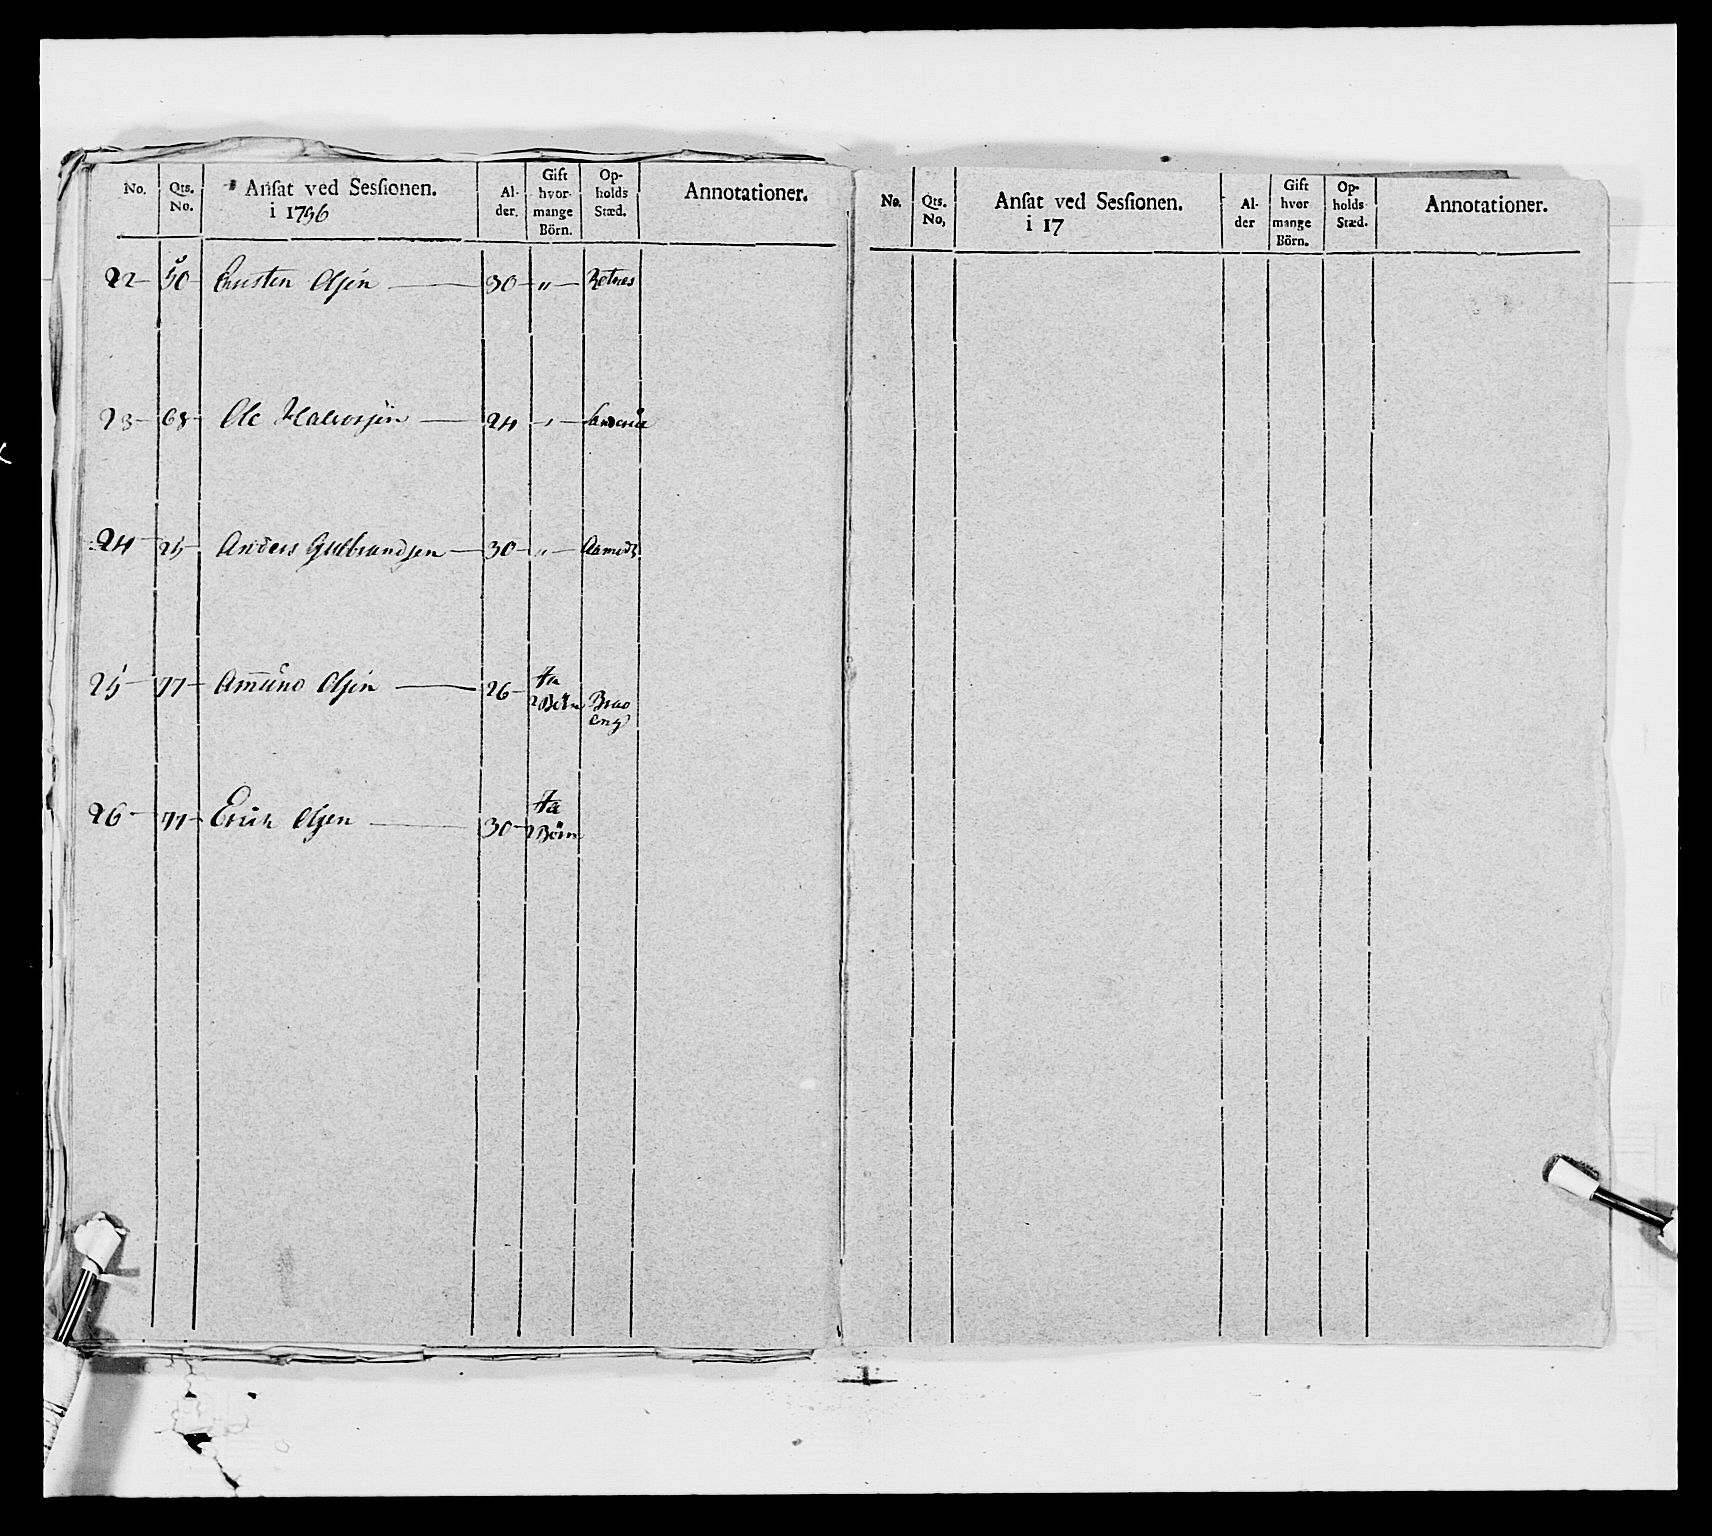 No. Qts. No. Ansat ved Sessionen. i 1796 Al-der. Gift hvor-mange Börn. Op-holds Stæd. Annotationer.
22 50 Christen Olsen 30 " Rotnes
23 68 Ole Halvorsen 24 "
24 25 Anders Gulbrandsen 30 "
25 77 Amund Olsen 26 Ja 2 Börn Brag eng
26 77 Erich Olsen 30 Ja 2 Börn
No. Qts. No, Ansat ved Sessionen. i 17 Al-der Gift hvor mange Börn. Op-holds Stæd. Annotationer.